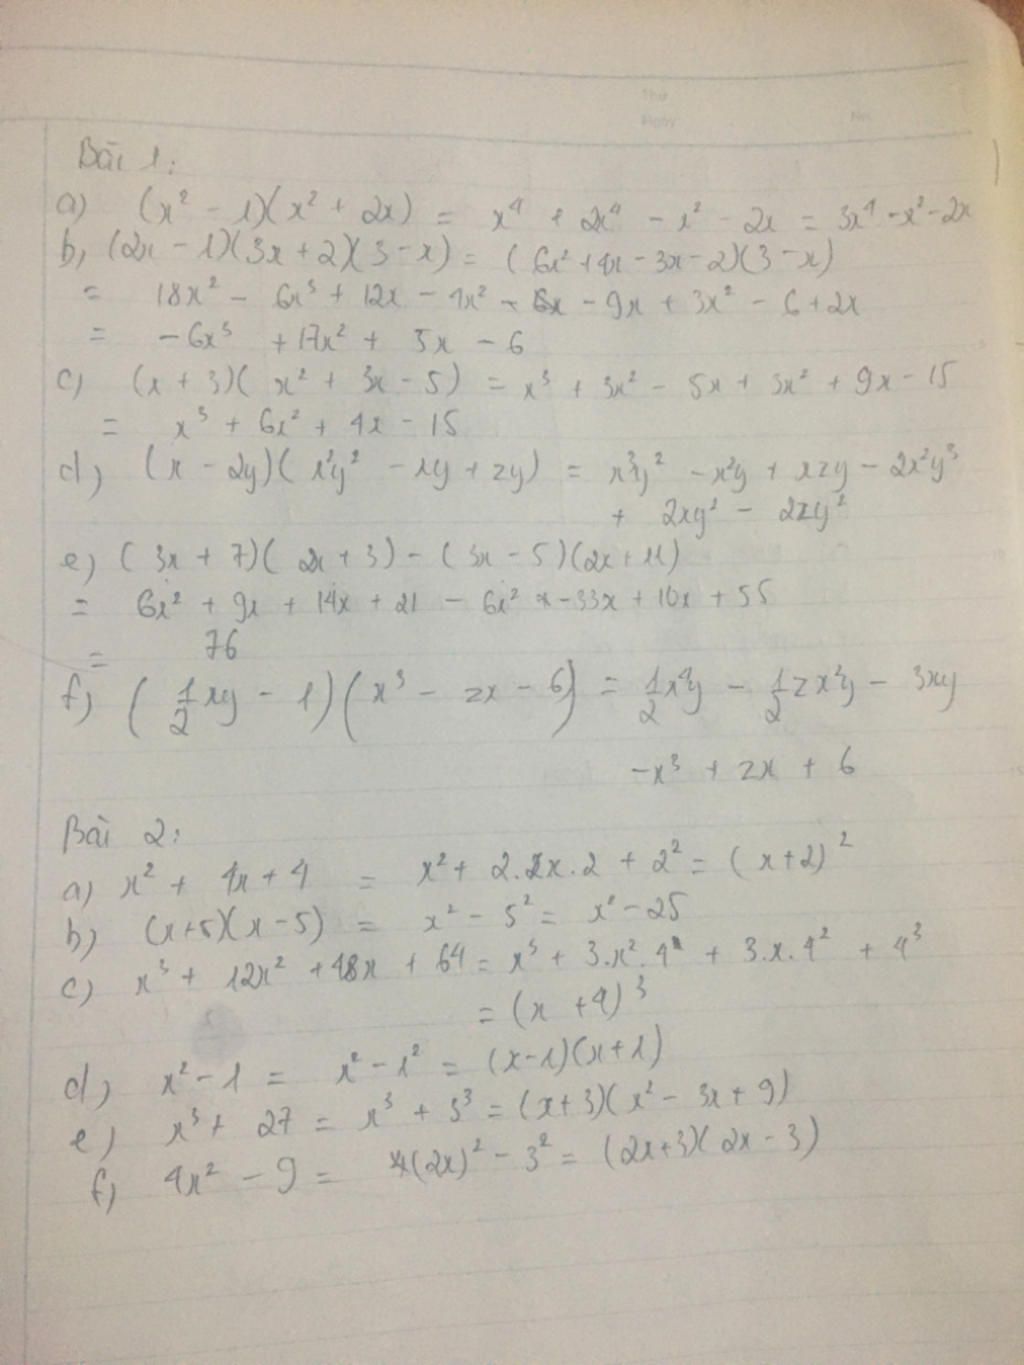 Bài 1:
a) (x² - 1)(x² + 2x) = x⁴ + 2x⁴ - x² - 2x = 3x⁴ - x² - 2x
b) (2x - 1)(3x + 2)(3 - x) = (6x² + 4x - 3x - 2)(3 - x)
= 18x² - 6x³ + 12x - 4x² - 9x + 3x² - 6 + 2x
= -6x³ + 17x² + 5x - 6
c) (x + 3)(x² + 3x - 5) = x³ + 3x² - 5x + 3x² + 9x - 15
= x³ + 6x² + 4x - 15
d) (x - 2y)(x²y² - xy + zy) = x³y² - x²y + xzy - 2x²y³
+ 2xy² - 2zy²
e) (3x + 7)(2x + 3) - (3x - 5)(2x + 11)
= 6x² + 9x + 14x + 21 - 6x² - 33x + 10x + 55
= 76
f) (1/2 xy - 1)(x³ - zx - 6) = 1/2 x⁴y - 1/2 zx²y - 3xy
-x³ + zx + 6
Bài 2:
a) x² + 4x + 4 = x² + 2.x.2 + 2² = (x+2)²
b) (x+5)(x-5) = x² - 5² = x² - 25
c) x³ + 12x² + 48x + 64 = x³ + 3.x².4 + 3.x.4² + 4³
= (x + 4)³
d) x² - 1 = x² - 1² = (x-1)(x+1)
e) x³ + 27 = x³ + 3³ = (x+3)(x² - 3x + 9)
f) 4x² - 9 = (2x)² - 3² = (2x+3)(2x - 3)